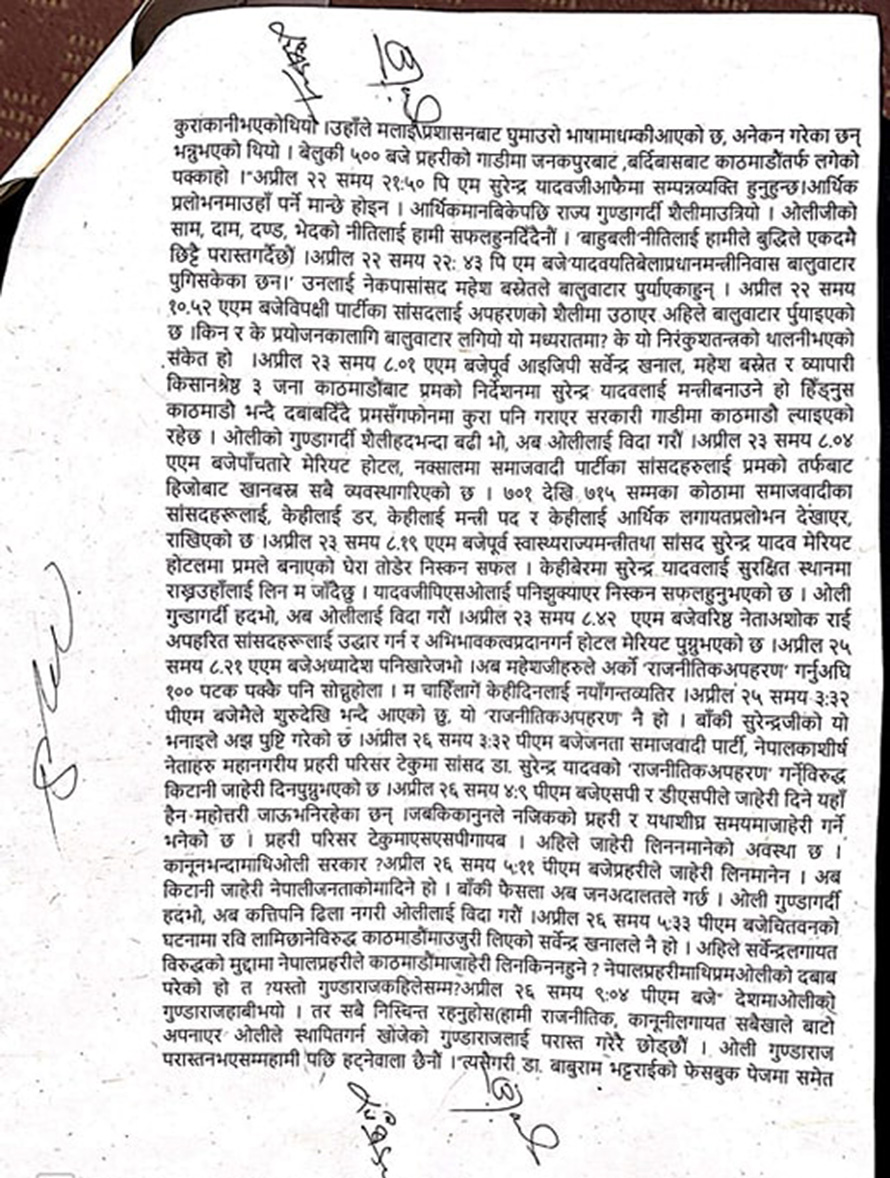 कुराकानीभएकोथियो ।उहाँले मलाई प्रशासनबाट घुमाउरो भाषामाधम्कीआएको छ, अनेकन गरेका छन्
भन्नुभएको थियो । बेलुकी ५०० बजे प्रहरीको गाडीमा जनकपुरबाट ,बर्दिबासबाट काठमाडौंतर्फ लगेको
पक्काहो ।"अप्रील २२ समय २१:५० पि एम सुरेन्द्र यादवजीआफैमा सम्पन्नव्यक्ति हुनुहुन्छ।आर्थिक
प्रलोभनमाउहाँ पर्ने मान्छे होइन । आर्थिकमानबिकेपछि राज्य गुण्डागर्दी शैलीमाउत्रियो । ओलीजीको
साम, दाम, दण्ड, भेदको नीतिलाई हामी सफलहुनदिँदैनौं । 'बाहुबली'नीतिलाई हामीले बुद्धिले एकदमै
छिट्टै परास्तगर्देछौं ।अप्रील २२ समय २२: ४३ पि एम बजे'यादवयतिबेलाप्रधानमन्त्रीनिवास बालुवाटार
पुगिसकेका छन।' उनलाई नेकपासांसद महेश बस्नेतले बालुवाटार पुर्याएकाहुन् । अप्रील २२ समय
१०.५२ एएम बजेविपक्षी पार्टीका सांसदलाई अपहरणको शैलीमा उठाएर अहिले बालुवाटार पुँयाइएको
छ ।किन र के प्रयोजनकालागि बालुवाटार लगियो यो मध्यरातमा? के यो निरंकुशतन्त्रको थालनीभएको
संकेत हो ।अप्रील २३ समय ८.०१ एएम बजेपूर्व आइजिपी सर्वेन्द्र खनाल, महेश बस्नेत र व्यापारी
किसानश्रेष्ठ ३ जना काठमाडौंबाट प्रमको निर्देशनमा सुरेन्द्र यादवलाई मन्त्रीबनाउने हो हिँड्नुस
काठमाडौ भन्दै दबाबदिँदै प्रमसँगफोनमा कुरा पनि गराएर सरकारी गाडीमा काठमाडौ ल्याइएको
रहेछ । ओलीको गुण्डागर्दी शैलीहदभन्दा बढी भो, अब ओलीलाई विदा गरौं ।अप्रील २३ समय ८.०४
एएम बजेपाँचतारे मेरियट होटल, नक्सालमा समाजवादी पार्टीका सांसदहरुलाई प्रमको तर्फबाट
हिजोबाट खानबस्न सबै व्यवस्थागरिएको छ । ७०१ देखि ७१५ सम्मका कोठामा समाजवादीका
सांसदहरूलाई, केहीलाई डर, केहीलाई मन्त्री पद र केहीलाई आर्थिक लगायतप्रलोभन देखाएर,
राखिएको छ ।अप्रील २३ समय ८.१९ एएम बजेपूर्व स्वास्थ्यराज्यमन्त्रीतथा सांसद सुरेन्द्र यादव मेरियट
होटलमा प्रमले बनाएको घेरा तोडेर निस्कन सफल । केहीबेरमा सुरेन्द्र यादवलाई सुरक्षित स्थानमा
राख्नउहाँलाई लिन म जाँदैछु । यादवजीपिएसओलाई पनिझुक्याएर निस्कन सफलहुनुभएको छ । ओली
गुन्डागर्दी हदभो, अब ओलीलाई विदा गरौं ।अप्रील २३ समय ८.४२ एएम बजेवरिष्ठ नेताअशोक राई
अपहरित सांसदहरूलाई उद्धार गर्न र अभिभावकत्वप्रदानगर्न होटल मेरियट पुग्नुभएको छ ।अप्रील २५
समय ८.२१ एएम बजेअध्यादेश पनिखारेजभो ।अब महेशजीहरुले अर्को 'राजनीतिकअपहरण' गर्नुअघि
१०० पटक पक्कै पनि सोच्नुहोला । म चाहिँलागें केहीदिनलाई नयाँगन्तव्यतिर ।अप्रील २५ समय ३:३२
पीएम बजेमैले शुरुदेखि भन्दै आएको छु, यो 'राजनीतिकअपहरण' नै हो । बाँकी सुरेन्द्रजीको यो
भनाइले अझ पुष्टि गरेको छ ।अप्रील २६ समय ३:३२ पीएम बजेजनता समाजवादी पार्टी, नेपालकाशीर्ष
नेताहरु महानगरीय प्रहरी परिसर टेकुमा सांसद डा. सुरेन्द्र यादवको 'राजनीतिकअपहरण' गर्नेविरुद्ध
किटानी जाहेरी दिनपुग्नुभएको छ ।अप्रील २६ समय ४:९ पीएम बजेएसपी र डीएसपीले जाहेरी दिने यहाँ
हैन महोत्तरी जाऊभनिरहेका छन् ।जबकिकानुनले नजिकको प्रहरी र यथाशीघ्र समयमाजाहेरी गर्ने
भनेको छ । प्रहरी परिसर टेकुमाएसएसपीगायब । अहिले जाहेरी लिननमानेको अवस्था छ ।
कानूनभन्दामाथिओली सरकार ?अप्रील २६ समय ५:११ पीएम बजेप्रहरीले जाहेरी लिनमानेन । अब
किटानी जाहेरी नेपालीजनताकोमादिने हो । बाँकी फैसला अब जनअदालतले गर्छ । ओली गुण्डागर्दी
हदभो, अब कत्तिपनि ढिला नगरी ओलीलाई विदा गरौं ।अप्रील २६ समय ५:३३ पीएम बजेचितवनको
घटनामा रवि लामिछानेविरुद्ध काठमाडौंमाउजुरी लिएको सर्वेन्द्र खनालले नै हो । अहिले सर्वेन्द्रलगायत
विरुद्धको मुद्दामा नेपालप्रहरीले काठमाडौंमाजाहेरी लिनकिननहुने ? नेपालप्रहरीमाथिप्रमओलीको दबाब
परेको हो त ?यस्तो गुण्डाराजकहिलेसम्म?अप्रील २६ समय ९:०४ पीएम बजे" देशमाओलीको
गुण्डाराजहाबीभयो । तर सबै निस्चिन्त रहनुहोस(हामी राजनीतिक, कानूनीलगायत सबैखाले बाटो
अपनाएर ओलीले स्थापितगर्न खोजेको गुण्डाराजलाई परास्त गरेरै छोड्छौं । ओली गुण्डाराज
परास्तनभएसम्महामी पछि हट्नेवाला छैनौं ।"त्यसैगरी डा. बाबुराम भट्टराईको फेसबुक पेजमा समेत